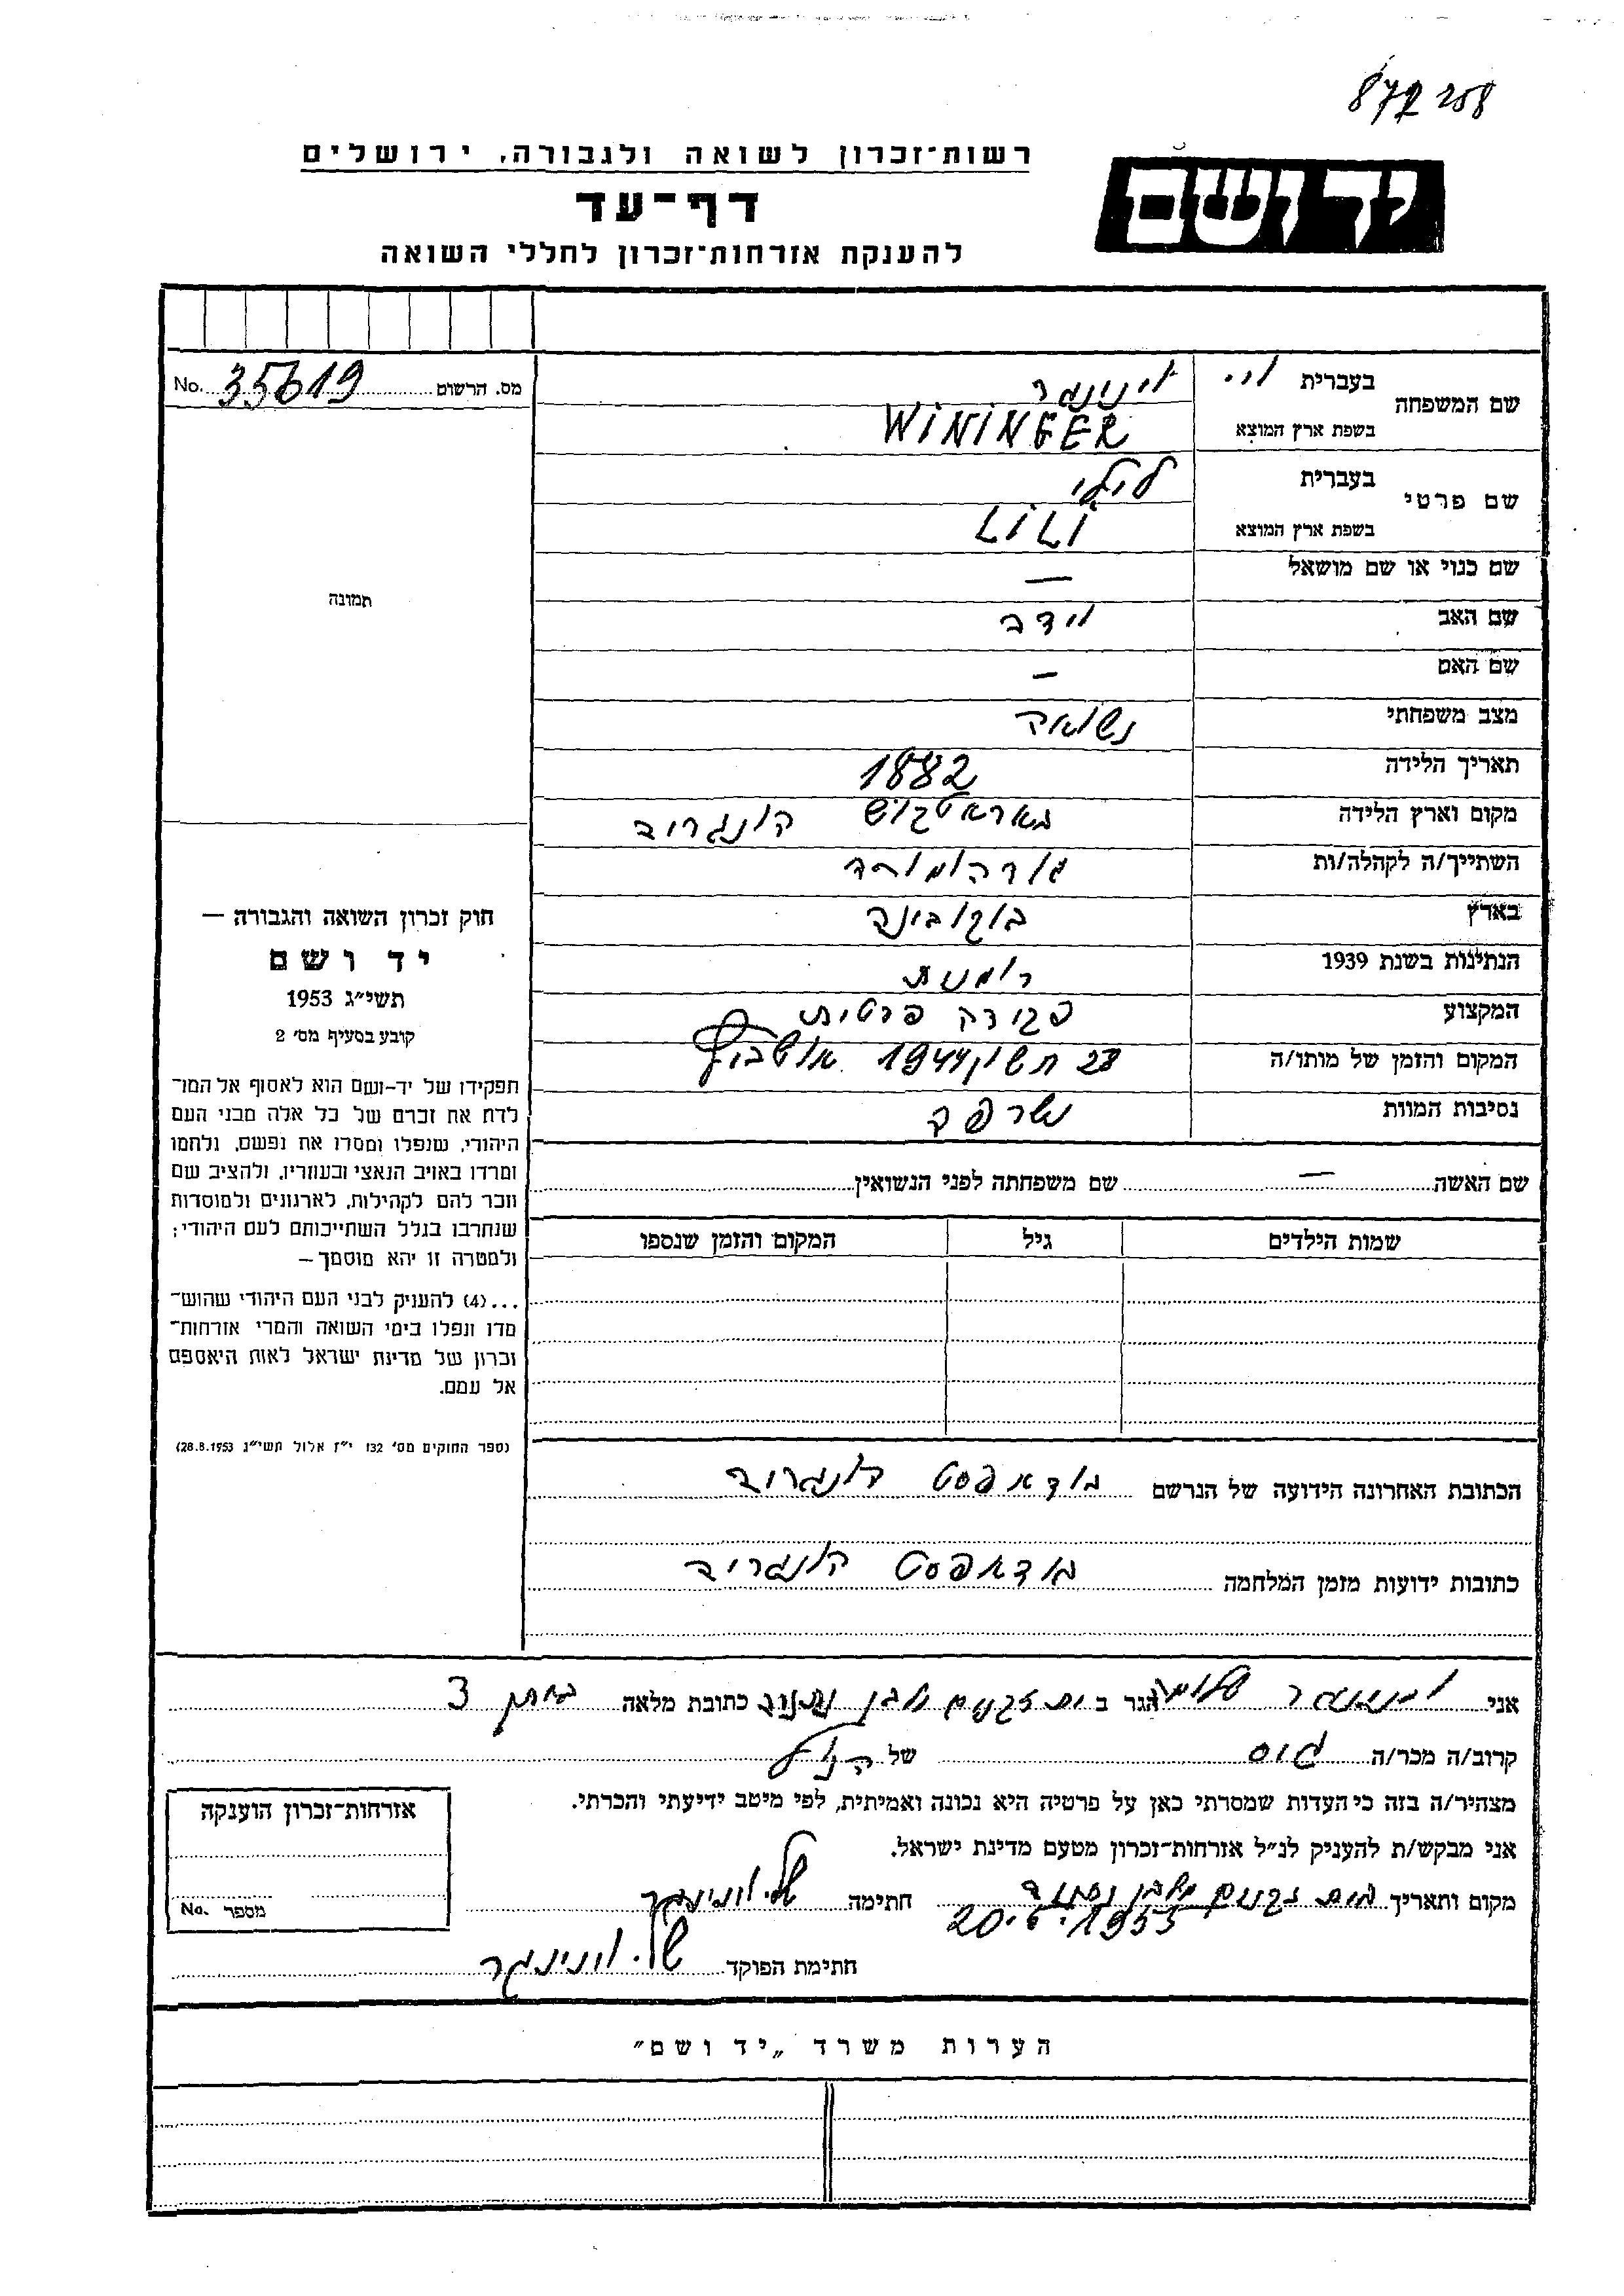 872 258
רשות־זכרון לשואה ולגבורה, ירושלים
יד ושם
דף־עד
להענקת אזרחות־זכרון לחללי השואה
מס. הרשום 35619 No.
שם המשפחה
בעברית וי. וינינגר
בשפת ארץ המוצא WININGER
שם פרטי
בעברית לילי
בשפת ארץ המוצא LILI
שם כנוי או שם מושאל —
שם האב
שם האם —
מצב משפחתי נשואה
תאריך הלידה 1882
מקום וארץ הלידה הונגריה
השתייך/ה לקהלה/ות גורהומורה
בארץ בוקובינה
הנתינות בשנת 1939 רומנית
המקצוע פקידה פרטית
המקום והזמן של מותו/ה 23 חשון 1944 אושביץ
נסיבות המוות שרפה
תמונה
חוק זכרון השואה והגבורה —
יד ושם
תשי״ג 1953
קובע בסעיף מס׳ 2
תפקידו של יד־ושם הוא לאסוף אל המו־
לדת את זכרם של כל אלה מבני העם
היהודי, שנפלו ומסרו את נפשם, נלחמו
ומרדו באויב הנאצי ובעוזריו, ולהציב שם
וזכר להם לקהילות, לארגונים ולמוסדות
שנחרבו בגלל השתייכותם לעם היהודי;
ולמטרה זו יהא מוסמך —
...(4) להעניק לבני העם היהודי שהוש־
מדו ונפלו בימי השואה והמרי אזרחות־
זכרון של מדינת ישראל לאות היאספם
אל עמם.
(ספר החוקים מס׳ 132 י״ז אלול תשי״ג 28.8.1953)
שם האשה — שם משפחתה לפני הנשואין
שמות הילדים גיל המקום והזמן שנספו
הכתובת האחרונה הידועה של הנרשם בודאפסט הונגריה
כתובות ידועות מזמן המלחמה בודאפסט הונגריה
אני וינינגר שלמה הגר ב בית זקנים מלבן נתניה כתובת מלאה ביתן 3
קרוב/ה מכר/ה גיס של הנ״ל
מצהיר/ה בזה כי העדות שמסרתי כאן על פרטיה היא נכונה ואמיתית, לפי מיטב ידיעתי והכרתי.
אני מבקש/ת להעניק לנ״ל אזרחות־זכרון מטעם מדינת ישראל.
מקום ותאריך בית זקנים מלבן נתניה חתימה של. וינינגר
חתימת הפוקד של. וינינגר
אזרחות־זכרון הוענקה
מספר No.
הערות משרד „יד ושם״